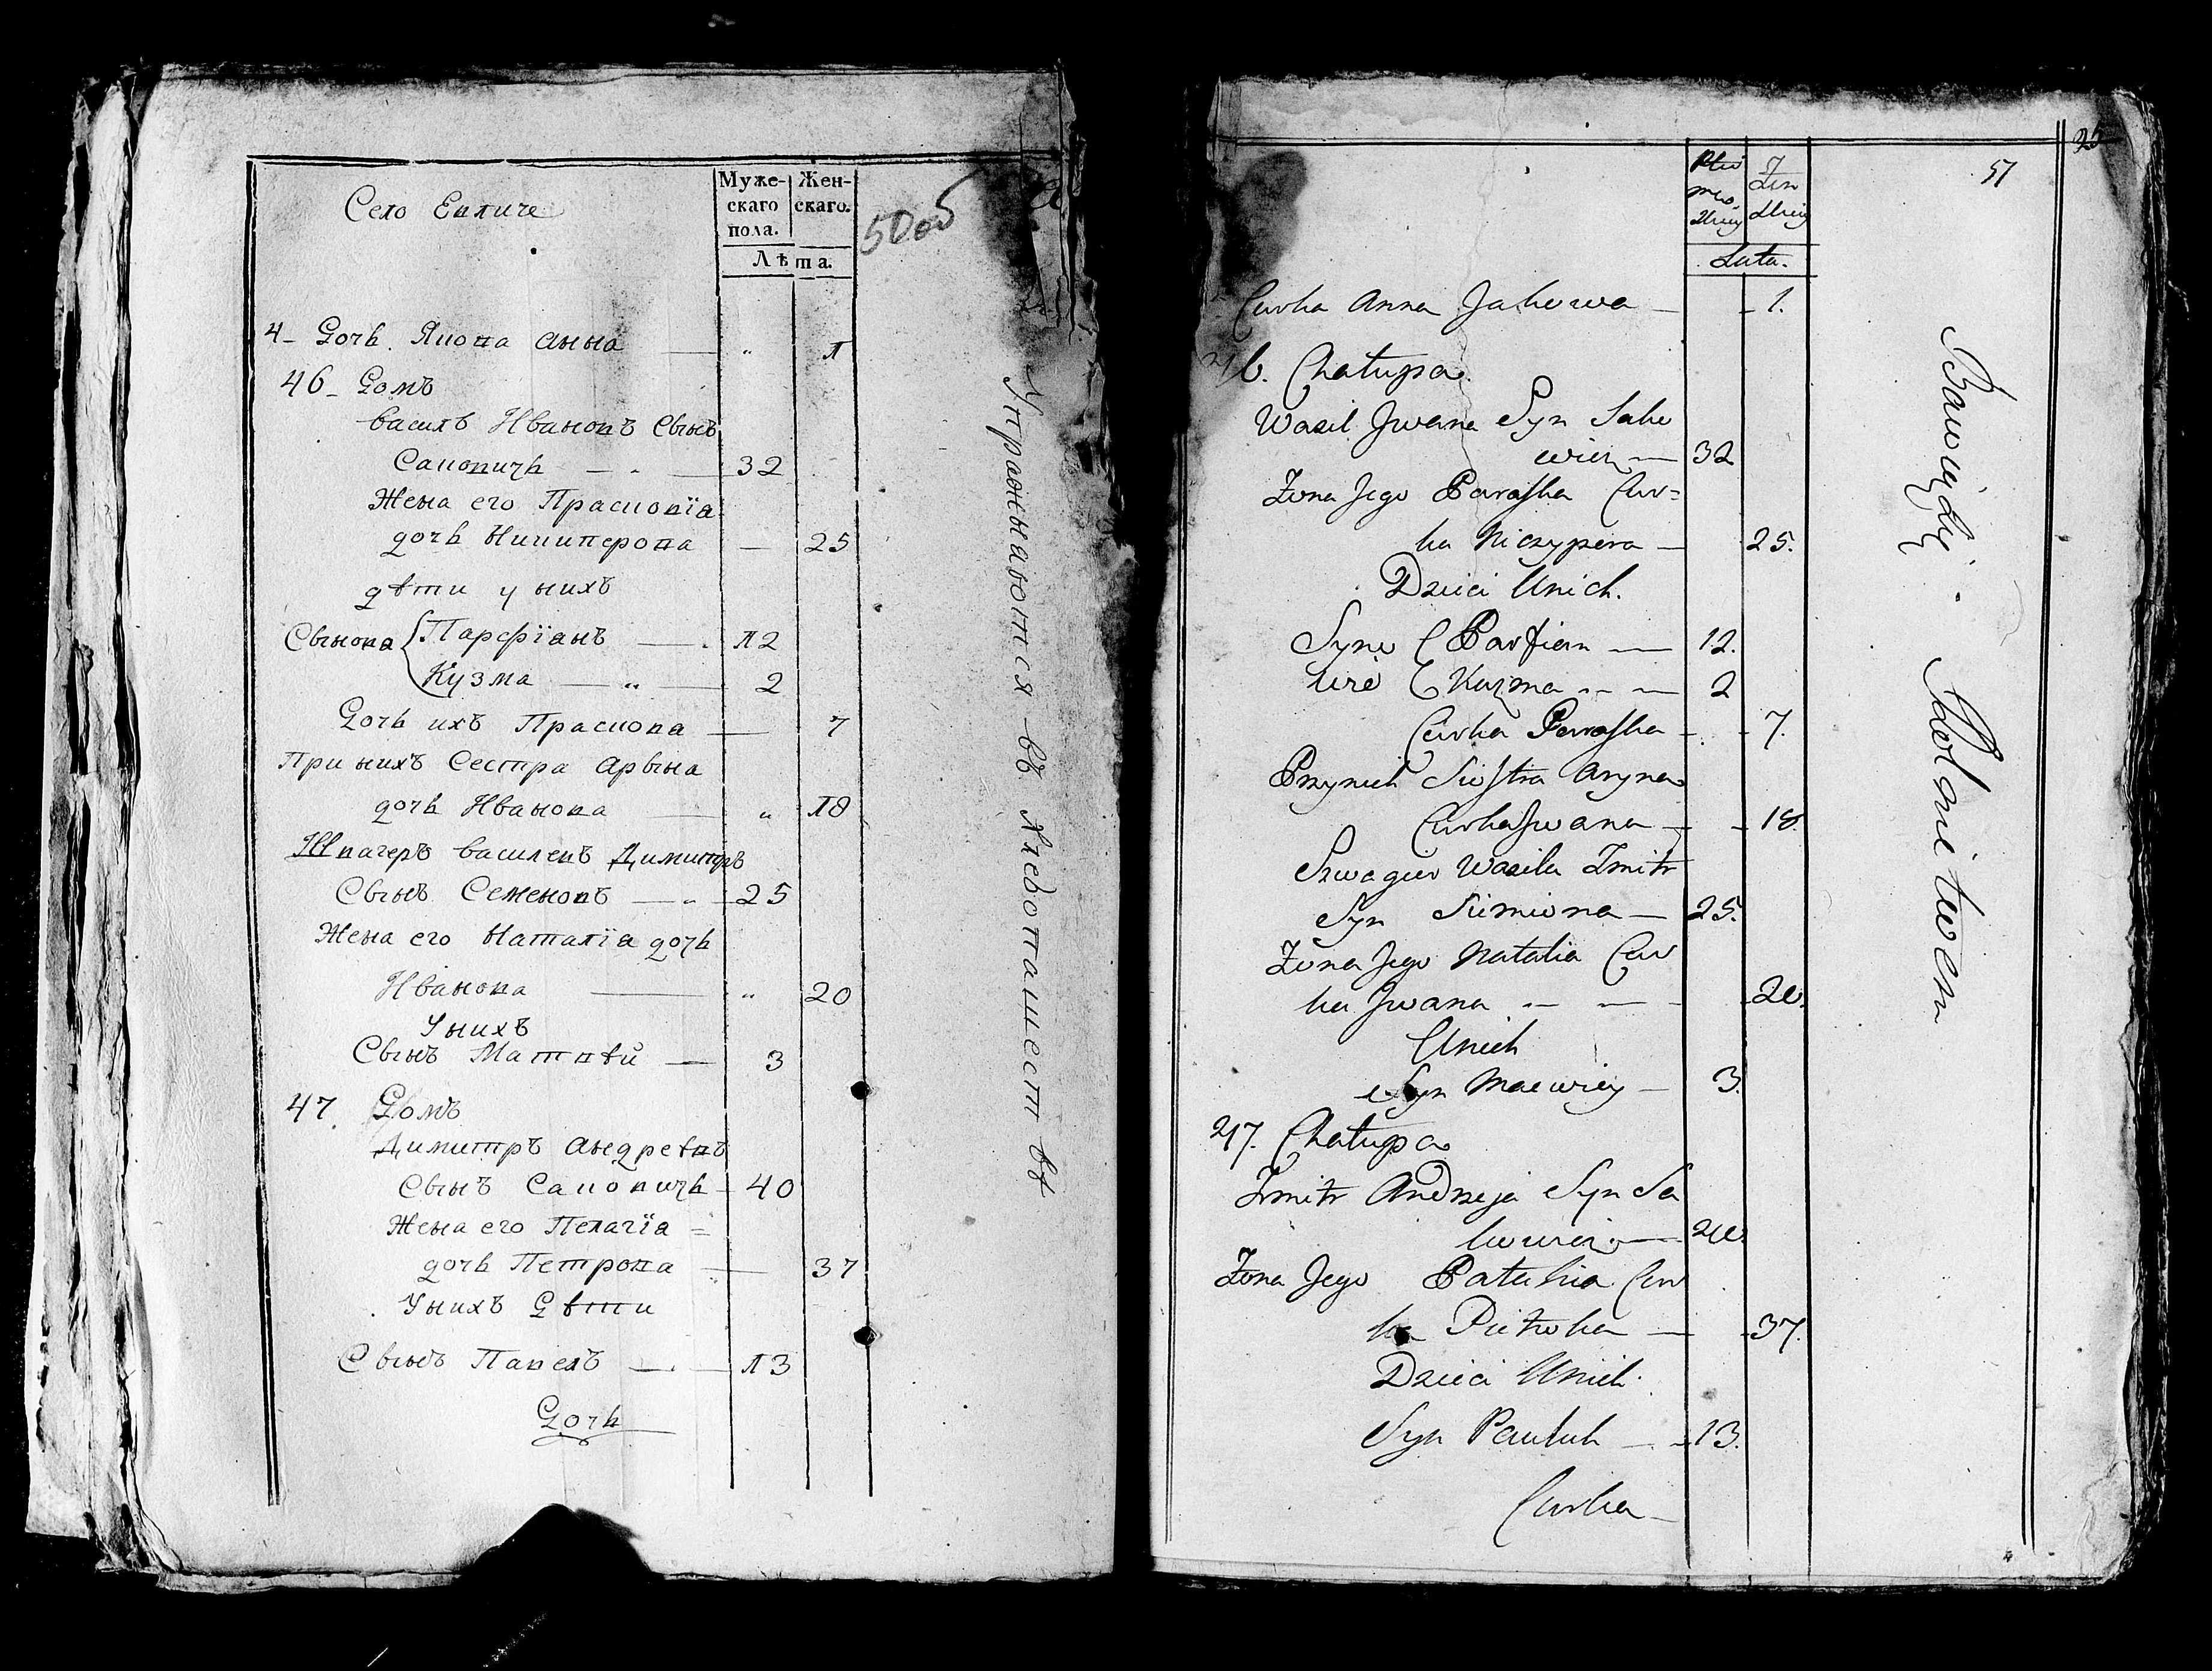 Село Евличе
Муже-
скаго
пола.
Жен-
скаго.
Лѣта.
50об
4- Дочь Якова Анна — " 1
46- Домъ
Василь Ивановъ Сынъ
Саковичь — " — 32
Жена его Прасковія
дочь Ничипорова — 25
дѣти у нихъ
Сынова { Парфіанъ — 12
Кузма — " — 2
Дочь ихъ Прасковa — 7
При нихъ Сестра Арына
дочь Иванова — " 18
Швагеръ Василевъ Димитръ
Сынъ Семеновъ — " — 25
Жена его Наталіа дочь
Иванова — " 20
У нихъ
Сынъ Матвѣй — 3
47. Домъ
Димитръ Андреѣвъ
Сынъ Саковичь — 40
Жена его Пелагіа =
дочь Петрова — 37
У нихъ Дѣти
Сынъ Павелъ — 13
Дочь
Упражняются въ Хлебопашествѣ
25
51
Płci
męs.
Żen
Lata.
Curka Anna Jakowa — 1.
46. Chałupa
Wasil Jwana Syn Sako
wicz — 32
Żona Jego Paraska Cur=
ka Niczypera — 25.
Dzieci Unich.
Syno { Parfian — 12.
wie { Kuzma — 2
Curka Paraska - 7.
Przynich Siostra Aryna
Curka Jwana — 18
Szwagier Wasila Zmitr
Syn Simiona — 25.
Żona Jego Natalia Cur
ka Jwana — — 20.
Unich
Syn Maćwiey — 3.
47. Chałupa
Zmitr Andrzeja Syn Sa
kowicz — 40.
Żona Jego Pałahia Cur
ka Pietroka — 37.
Dzieci Unich.
Syn Pauluk — 13.
Curka —
Bawią się Rolnictwem